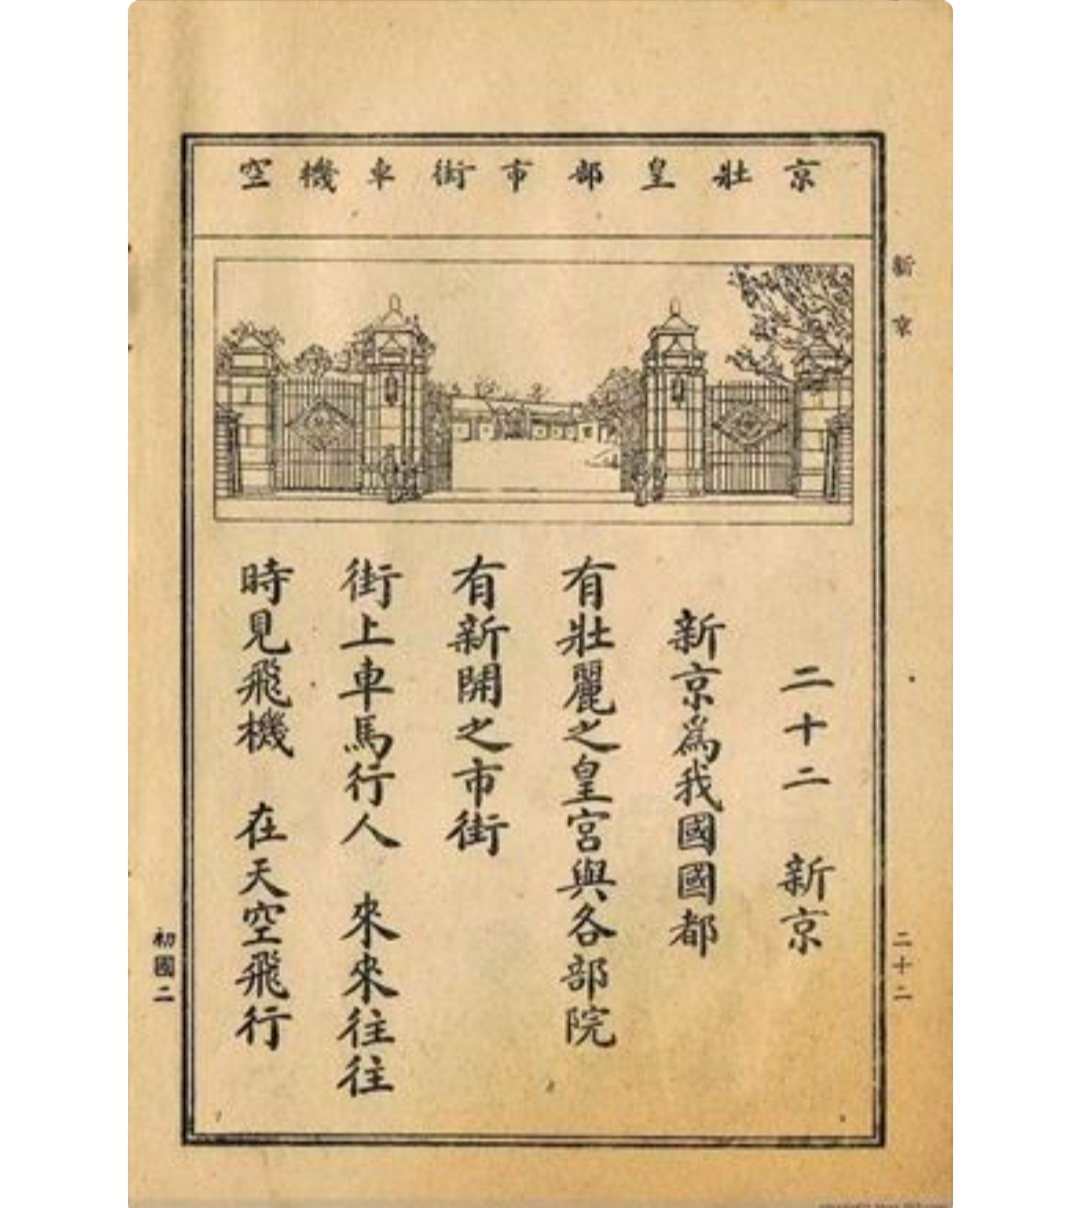 京壯皇部市街車機空
新京
二十二 新京
新京爲我國國都
有壯麗之皇宮與各部院
有新開之市街
街上車馬行人 來來往往
時見飛機 在天空飛行
二十二
初國二